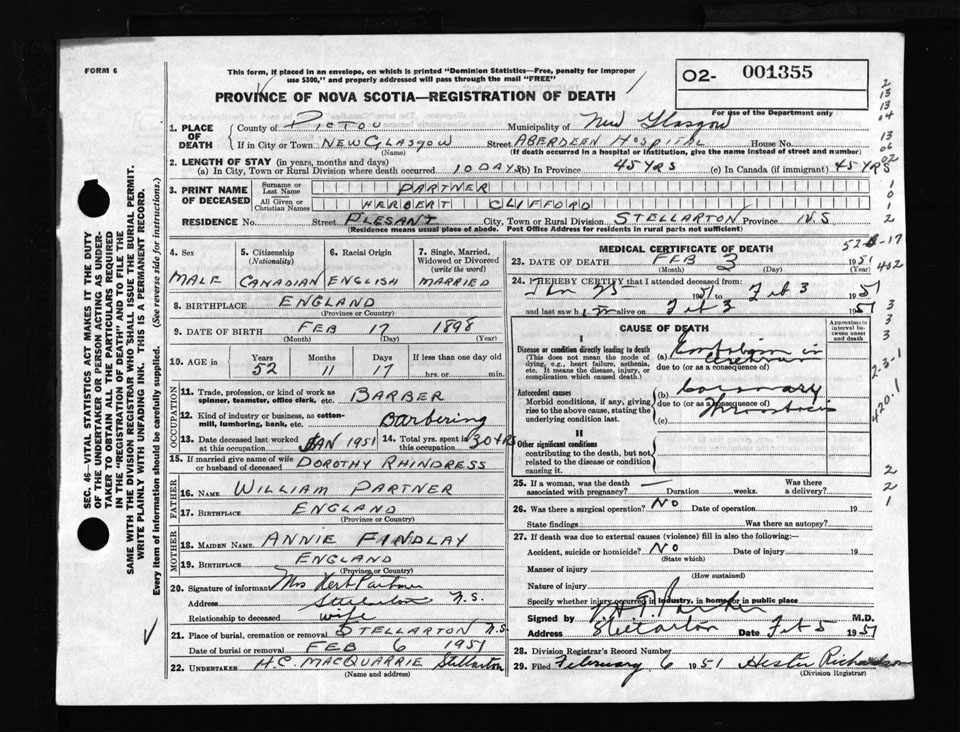 FORM 6
This form, if placed in an envelope, on which is printed "Dominion Statistics—Free, penalty for improper
use $300," and properly addressed will pass through the mail "FREE"
O2- 001355
For use of the Department only
PROVINCE OF NOVA SCOTIA—REGISTRATION OF DEATH
1. PLACE OF DEATH
County of PICTOU Municipality of New Glasgow
If in City or Town NEW GLASGOW Street ABERDEEN HOSPITAL House No.
(Name) (If death occurred in a hospital or institution, give the name instead of street and number)
2. LENGTH OF STAY (in years, months and days)
(a) In City, Town or Rural Division where death occurred 10 DAYS (b) In Province 45 YRS (c) In Canada (if immigrant) 45 YRS
3. PRINT NAME OF DECEASED
Surname or Last Name PARTNER
All Given or Christian Names HERBERT CLIFFORD
RESIDENCE No. Street PLESANT City, Town or Rural Division STELLARTON Province N.S
(Residence means usual place of abode. Post Office Address for residents in rural parts not sufficient)
4. Sex 5. Citizenship (Nationality) 6. Racial Origin 7. Single, Married, Widowed or Divorced (write the word)
MALE CANADIAN ENGLISH MARRIED
8. BIRTHPLACE ENGLAND
(Province or Country)
9. DATE OF BIRTH FEB 17 1898
(Month) (Day) (Year)
10. AGE in Years Months Days If less than one day old
52 11 17 hrs. or min.
OCCUPATION
11. Trade, profession, or kind of work as
spinner, teamster, office clerk, etc. BARBER
12. Kind of industry or business, as cotton-
mill, lumbering, bank, etc. Barbering
13. Date deceased last worked at this occupation JAN 1951 14. Total yrs. spent in this occupation 30 YRS
15. If married give name of wife
or husband of deceased DOROTHY RHINDRESS
FATHER
16. NAME WILLIAM PARTNER
17. BIRTHPLACE ENGLAND
(Province or Country)
MOTHER
18. MAIDEN NAME ANNIE FINDLAY
19. BIRTHPLACE ENGLAND
(Province or Country)
20. Signature of informant Mrs Herb Partner
Address Stellarton N.S.
Relationship to deceased wife
21. Place of burial, cremation or removal STELLARTON N.S
Date of burial or removal FEB 6 1951
22. UNDERTAKER H.C. MACQUARRIE Stellarton
(Name and address)
MEDICAL CERTIFICATE OF DEATH
23. DATE OF DEATH FEB 3 1951
(Month) (Day) (Year)
24. I HEREBY CERTIFY that I attended deceased from:
Jan 25 1951 to Feb 3 1951
and last saw him alive on Feb 3 1951
CAUSE OF DEATH
Approximate interval between onset and death
I
Disease or condition directly leading to death
(This does not mean the mode of
dying, e.g., heart failure, asthenia,
etc. It means the disease, injury, or
complication which caused death.)
(a) Embolism in
Cerebrum
due to (or as a consequence of)
Antecedent causes
Morbid conditions, if any, giving
rise to the above cause, stating the
underlying condition last.
(b) Coronary
due to (or as a consequence of)
Thrombosis
(c)
II
Other significant conditions
contributing to the death, but not
related to the disease or condition
causing it.
25. If a woman, was the death associated with pregnancy? — Duration weeks. Was there a delivery?
26. Was there a surgical operation? NO Date of operation 19
State findings Was there an autopsy?
27. If death was due to external causes (violence) fill in also the following:
Accident, suicide or homicide? NO Date of injury 19
(State which)
Manner of injury
(How sustained)
Nature of injury
Specify whether injury occurred in Industry, in home or in public place
Signed by Parker M.D.
Address Stellarton Date Feb 5 1951
28. Division Registrar's Record Number
29. Filed February 6 1951 Hester Richardson
(Division Registrar)
SEC. 46—VITAL STATISTICS ACT MAKES IT THE DUTY
OF THE UNDERTAKER OR PERSON ACTING AS UNDER-
TAKER TO OBTAIN ALL THE PARTICULARS REQUIRED
IN THE "REGISTRATION OF DEATH" AND TO FILE THE
SAME WITH THE DIVISION REGISTRAR WHO SHALL ISSUE THE BURIAL PERMIT.
WRITE PLAINLY WITH UNFADING INK. THIS IS A PERMANENT RECORD.
Every item of information should be carefully supplied. (See reverse side for instructions.)
2
13
13
04
13
06
02
1
0
1
2
402
3
3
2-3-1
420.1
2
2
1